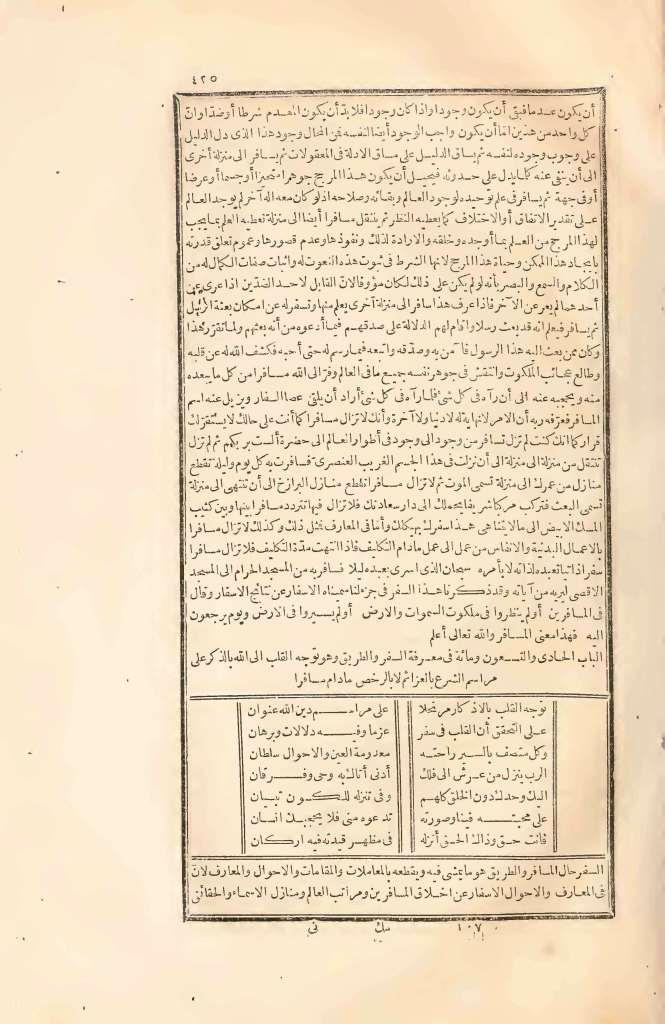 ٤٢٥
أن يكون عدما فبقي أن يكون وجودا واذا كان وجودا فلا بد أن يكون المعدم شرطا أو ضدا وان
كل واحد من هذين اما أن يكون واجب الوجود أيضا لنفسه فمن المحال وجود هذا الذى دل الدليل
على وجوب وجوده لنفسه ثم يساق الدليل على مساق الادلة فى المعقولات ثم يسافر الى منزلة أخرى
الى أن ينفى عنه كل ما يدل على حدوثه فيحيل أن يكون هذا المرجح جوهرا متحيزا أو جسما أو عرضا
أو فى جهة ثم يسافر فى علم توحيده لوجود العالم وبقائه وصلاحه اذ لو كان معه اله آخر لم يوجد العالم
على تقدير الاتفاق أو الاختلاف كما يعطيه النظر ثم ينتقل مسافرا أيضا الى منزلة تعطيه العلم بما يجب
لهذا المرجح من العلم بما أوجده وخلقه والارادة لذلك ونفوذها وعدم قصورها وعموم تعلق قدرته
بايجاد هذا الممكن وحياة هذا المرجح لانها الشرط فى ثبوت هذه النعوت له واثبات صفات الكمال له من
الكلام والسمع والبصر بأنه لو لم يكن على ذلك لكان مؤوفا لان القابل لاحد الضدين اذا عرى عن
أحدهما لم يعر عن الآخر فاذا عرف هذا سافر الى منزلة أخرى يعلم منها وتسفر له عن امكان بعثة الرسل
ثم يسافر فيعلم انه قد بعث رسلا وأقام لهم الدلالة على صدقهم فيما أدعوه من أنه بعثهم ولما تقرر هذا
وكان ممن بعث اليه هذا الرسول فآمن به وصدقه واتبعه فيما رسم له حتى أحبه فكشف الله له عن قلبه
وطالع عجائب الملكوت وانتقش فى جوهر نفسه جميع ما فى العالم وفر الى الله مسافرا من كل ما يبعده
منه ويحجبه عنه الى أن رآه فى كل شئ فلما رآه فى كل شئ أراد أن يلقى عصا التسفار ويزيل عنه اسم
المسافر فعرفه ربه أن الامر لا نهاية له لا دنيا ولا آخرة وأنك لا تزال مسافرا كما أنت على حالك لا يستقر بك
قرار كما انك كنت لم تزل تسافر من وجود الى وجود فى أطوار العالم الى حضرة ألست بربكم ثم لم تزل
تنتقل من منزلة الى منزلة الى أن نزلت فى هذا الجسم الغريب العنصرى فسافرت به كل يوم وليلة تقطع
منازل من عمرك الى منزلة تسمى الموت ثم لا تزال مسافرا تقطع منازل البرازخ الى أن تنتهى الى منزلة
تسمى البعث فتركب مركبا شريفا يحملك الى دار سعادتك فلا تزال فيها تتردد مسافرا بينها وبين كثيب
المسك الابيض الى ما لا يتناهى هذا سفرك بهيكلك وأما فى المعارف فمثل ذلك وكذلك لا تزال مسافرا
بالاعمال البدنية والانفاس من عمل الى عمل ما دام التكليف فاذا انتهت مدة التكليف فلا تزال مسافرا
سفرا ذاتيا تعبده لذاته لا بأمره سبحان الذى أسرى بعبده ليلا فسافر به من المسجد الحرام الى المسجد
الاقصى ليريه من آياته وقد ذكرنا هذا السفر فى جزء لنا سميناه الاسفار عن نتائج الاسفار وقال
فى المسافرين أولم ينظروا فى ملكوت السموات والارض أولم يسيروا فى الارض ويوم يرجعون
اليه فهذا معنى المسافر والله تعالى أعلم
الباب الحادى والتسعون ومائة فى معرفة السفر والطريق وهو توجه القلب الى الله بالذكر على
مراسم الشرع بالعزائم لا بالرخص ما دام مسافرا
توجه القلب بالاذكار مرتحلا على مراسم دين الله عنوان
على التحقق أن القلب فى سفر عزما وفيه دلالات وبرهان
وكل متصف بالسير راحته معدومة العين والاحوال سلطان
الرب ينزل من عرش الى فلك أدنى أتانا به وحى وفرقان
اليك وحدك دون الخلق كلهم وفى تنزله للكون تبيان
على محبته فينا وصورته تدعوه منى فلا يحجبك انسان
فأنت حق وذاك الحق أنزله فى مظهر قيدته فيه اركان
السفر حال المسافر والطريق هو ما يمشى فيه ويقطعه بالمعاملات والمقامات والاحوال والمعارف لان
فى المعارف والاحوال الاسفار عن اخلاق المسافرين ومراتب العالم ومنازل الاسماء والحقائق
١٠٧ مك نى